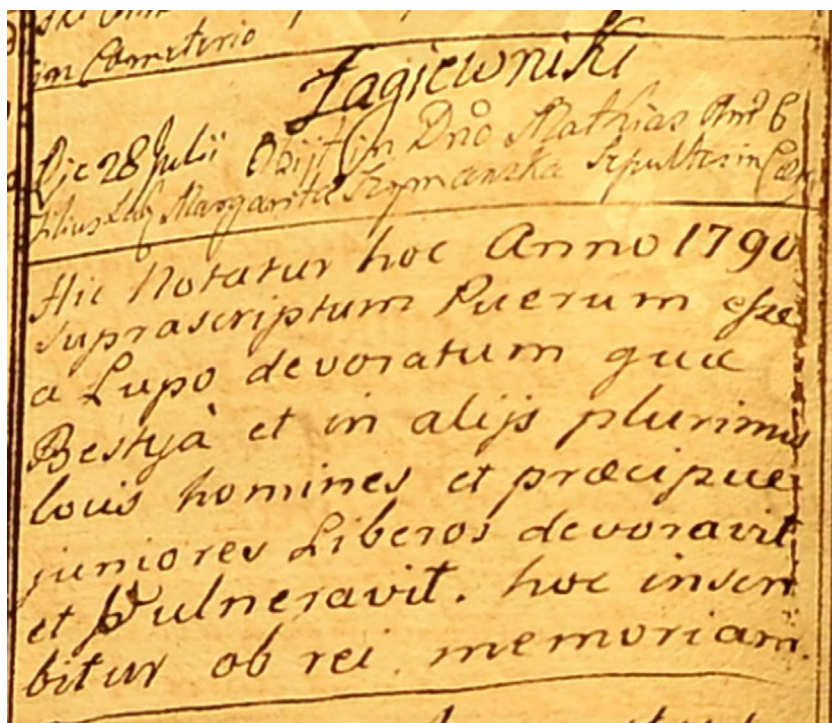 in Cæmeterio
Łagiewniki
Die 28 Julii Obijt in Dnō Mathias Anñ 6
Filius Margaritæ Szymanska Sepultus in Cæm
Hic Notatur hoc Anno 1790
suprascriptum Puerum esse
a Lupo devoratum quæ
Bestyà et in alijs plurimis
locis homines et præcipue
juniores Liberos devoravit
et Vulneravit. hoc inscri
bitur ob rei memoriam.